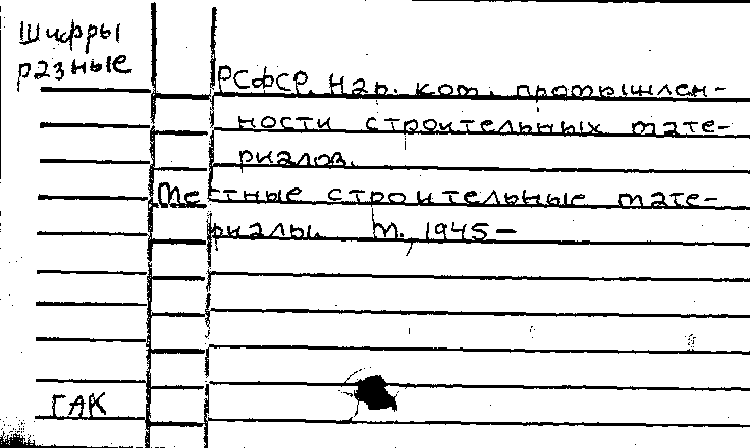 Шифры
разные
РСФСР. Нар. ком. промышлен-
ности строительных мате-
риалов.
Местные строительные мате-
риалы. М., 1945-
ГАК